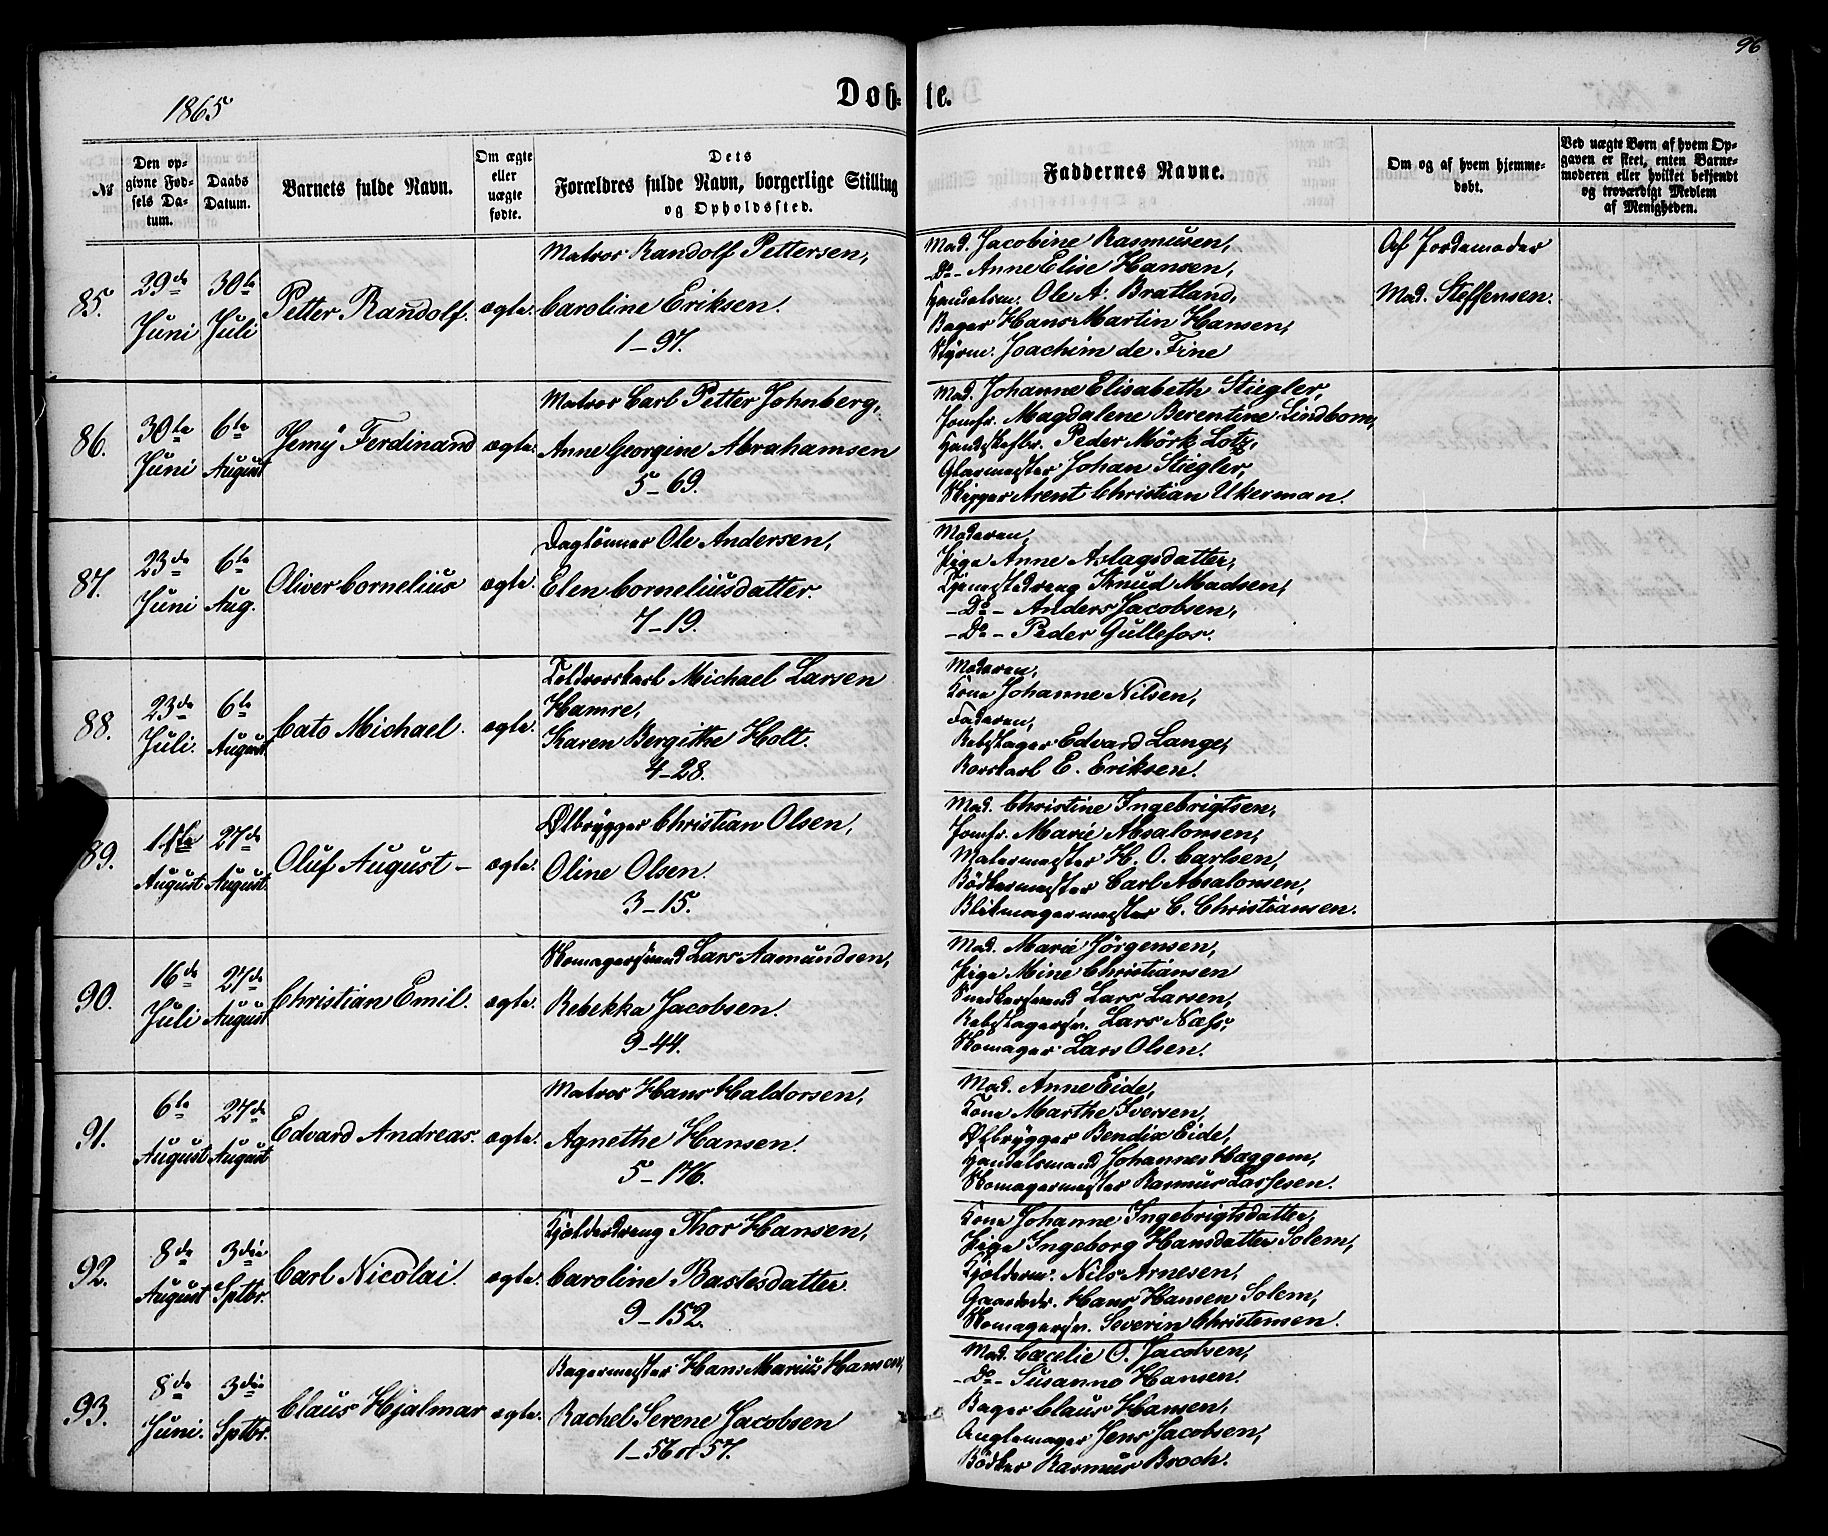 96
1865
Døb- te.
№
Den op-
givne Fød-
sels Da-
tum.
Daabs
Datum.
Barnets fulde Navn.
Om ægte
eller
uægte
fødte.
Dets
Forældres fulde Navn, borgerlige Stilling
og Opholdssted.
Faddernes Navne.
Om og af hvem hjemme-
døbt.
Ved uægte Børn af hvem Op-
gaven er skeet, enten Barne-
moderen eller hvilket bekjendt
og troværdigt Medlem
af Menigheden.
85.
29de
Juni
30te
Juli
Petter Randolf.
ægte.
Matros Randolf Pettersen,
Caroline Eriksen.
1-97.
Mad. Jacobine Rasmusen,
-Do- Anne Elise Hansen,
Handelsm. Ole A. Bratland,
Bager Hans Martin Hansen,
Styrm. Joachim de Fine
Af Jordemoder
Mad. Steffensen.
86.
30te
Juni
6te
August
Jemy Ferdinand
ægte.
Matros Carl Petter Johnberg,
Anne Georgine Abrahamsen
5-69.
Mad. Johanne Elisabeth Stiegler,
Jomfr. Magdalene Berentine Lindbom,
Peder Mörk Lotz,
Glarmester Johan Stiegler,
Skipper Arent Christian Ukerman.
87.
23de
Juni
6te
Aug.
Oliver Cornelius
ægte.
Daglönner Ole Andersen,
Elen Corneliusdatter.
7-19.
Moderen,
Pige Anne Aslagsdatter,
Tjenestedreng Knud Madsen,
-Do- Anders Jacobsen,
-Do- Peder Gullefos.
88.
23de
Juli.
6te
August
Cato Michael.
ægte.
Toldroerskarl Michael Larsen
Hamre,
Karen Bergithe Holt.
4-28.
Moderen,
Kone Johanne Nilsen,
Faderen,
Rebslager Edvard Lange,
Rorskarl E. Eriksen.
89.
11te
August
27de
August.
Oluf August -
ægte.
Ølbrygger Christian Olsen,
Oline Olsen.
3-15.
Mad. Christine Ingebrigtsen,
Jomfr. Marie Absalonsen,
Malermester H. O. Carlsen,
Bödkermester Carl Absalonsen,
Blikmagermester C. Christiansen.
90.
16de
Juli
27de
August
Christian Emil.
ægte.
Skomagersvend Lars Aamundsen,
Rebekka Jacobsen.
9-44.
Mad. Marie Jörgensen,
Pige Mine Christiansen
Snedkersvend Lars Larsen,
Rebslagersv. Lars Næss,
Skomager Lars Olsen.
91.
6te
August
27de
August
Edvard Andreas.
ægte.
Matros Hans Haldorsen,
Agnethe Hansen.
5-176.
Mad. Anne Eide,
Kone Marthe Iversen,
Ølbrygger Bendix Eide,
Handelsmand Johannes Haggem,
Skomagermester Rasmus Lassesen.
92.
8de
August
3die
Sptbr.
Carl Nicolai.
ægte.
Kjælderdreng Thor Hansen,
Caroline Bastesdatter.
9-152.
Kone Johanne Ingebrigtsdatter,
Pige Ingeborg Hansdatter Solem,
Kjælderm. Nils Arnesen,
Gaardsdr. Hans Hansen Solem,
Skomagersv. Severin Christensen.
93.
8de
Juni.
3die
Sptbr.
Claus Hjalmar
ægte.
Bagermester Hans Marius Hansen,
Rachel Serene Jacobsen
1-56 & 57.
Mad. Cæcelie O. Jacobsen,
-Do- Susanne Hansen,
Bager Claus Hansen,
Anglemager Jens Jacobsen,
Bödker Rasmus Broch.